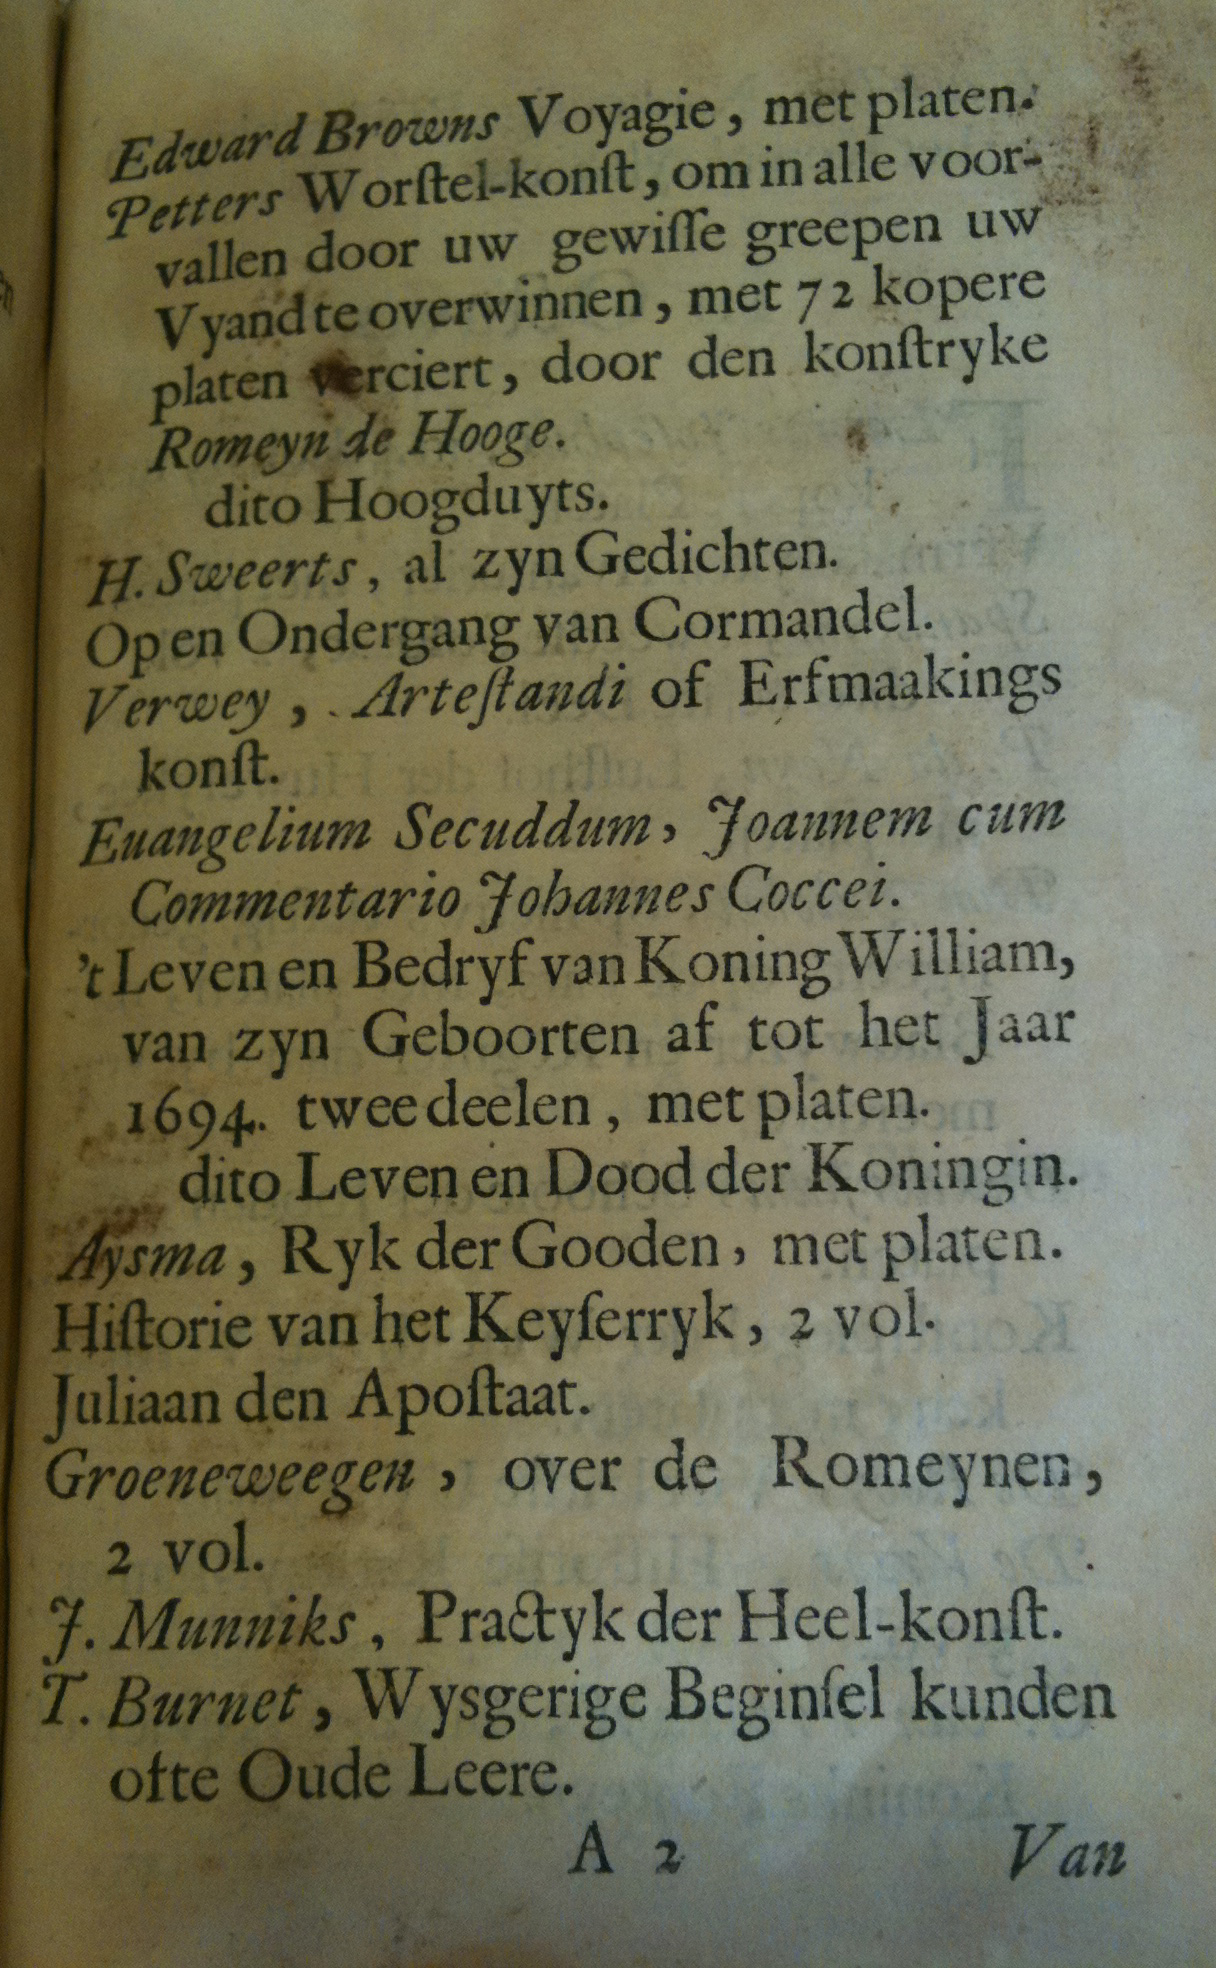 Edward Browns Voyagie, met platen.
Petters Worſtel-konſt, om in alle voor-
vallen door uw gewiſſe greepen uw
Vyand te overwinnen, met 72 kopere
platen verciert, door den konſtryke
Romeyn de Hooge.
dito Hoogduyts.
H. Sweerts, al zyn Gedichten.
Op en Ondergang van Cormandel.
Verwey, Arteſtandi of Erfmaakings
konſt.
Euangelium Secuddum, Joannem cum
Commentario Johannes Coccei.
't Leven en Bedryf van Koning William,
van zyn Geboorten af tot het Jaar
1694. twee deelen, met platen.
dito Leven en Dood der Koningin.
Aysma, Ryk der Gooden, met platen.
Hiſtorie van het Keyſerryk, 2 vol.
Juliaan den Apoſtaat.
Groeneweegen, over de Romeynen,
2 vol.
J. Munniks, Practyk der Heel-konſt.
T. Burnet, Wysgerige Beginſel kunden
ofte Oude Leere.
A 2 Van